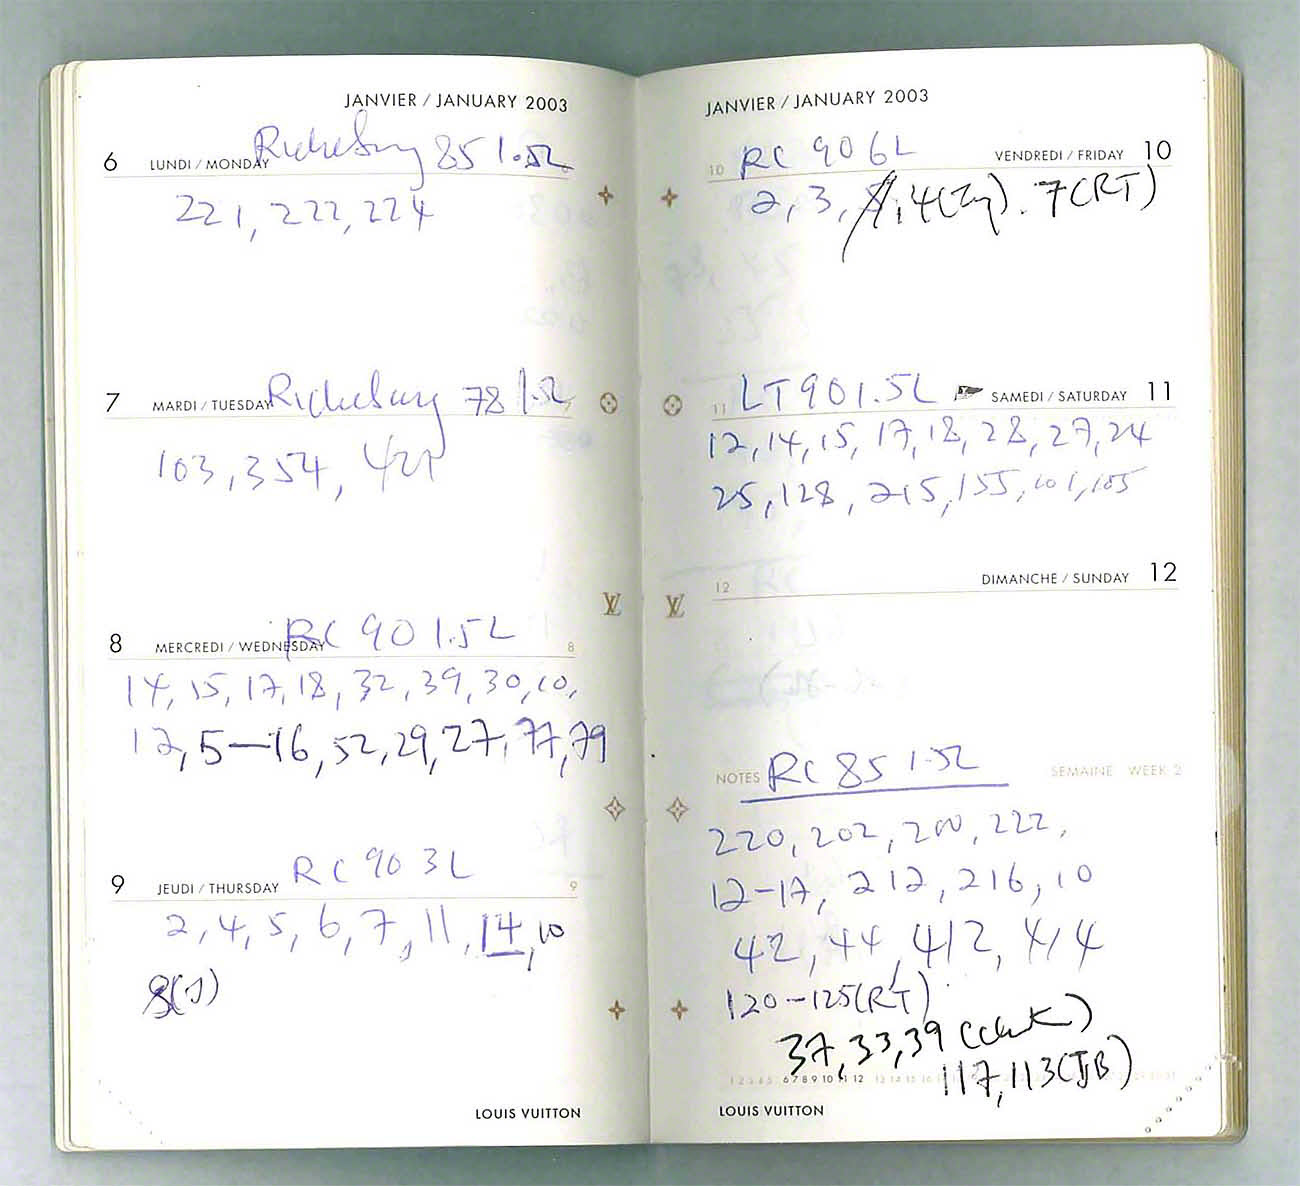 JANVIER / JANUARY 2003
6 LUNDI / MONDAY Richebourg 85 1.5L
221, 222, 224
7 MARDI / TUESDAY Richebourg 78 1.5L
103, 354,
8 MERCREDI / WEDNESDAY RC 90 1.5L 8
14, 15, 17, 18, 32, 39, 30, 10,
12, 5-16, 52, 29, 27, 77, 79
9 JEUDI / THURSDAY RC 90 3L 9
2, 4, 5, 6, 7, 11, 14, 10
8(J)
LOUIS VUITTON
JANVIER / JANUARY 2003
10 RC 90 6L VENDREDI / FRIDAY 10
2, 3, 4(Zy). 7(RT)
11 LT 90 1.5L SAMEDI / SATURDAY 11
12, 14, 15, 17, 18, 28, 27, 24
25, 128, 215, 155, 101, 105
12 DIMANCHE / SUNDAY 12
NOTES RC 85 1.5L SEMAINE WEEK 2
220, 202, 200, 222,
12-17, 212, 216, 10
42, 44, 412, 414
120-125(RT)
37, 33, 39
6 7 8 9 10 11 12
117, 113(JB)
LOUIS VUITTON